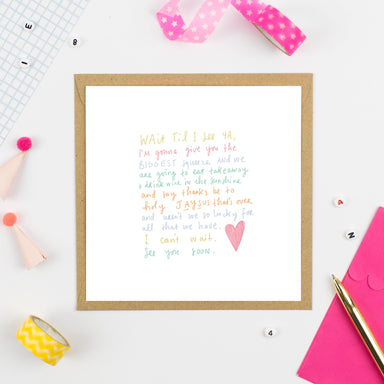 WAit Til I See YA,
I'm gonna give you the
BIGGEST squeeze and we
are going to eat takeaway
& drink wine in the sunshine
and say thanks be to
holy JAYSUS that's over
and aren't we so lucky for
all that we have.
I can't wait.
See you soon.
8
E
4
N
4